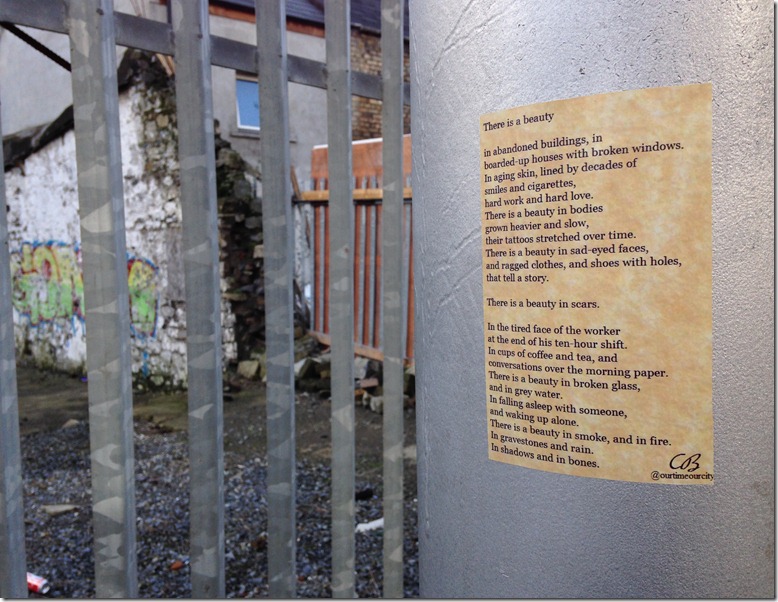 There is a beauty
in abandoned buildings, in
boarded-up houses with broken windows.
In aging skin, lined by decades of
smiles and cigarettes,
hard work and hard love.
There is a beauty in bodies
grown heavier and slow,
their tattoos stretched over time.
There is a beauty in sad-eyed faces,
and ragged clothes, and shoes with holes,
that tell a story.
There is a beauty in scars.
In the tired face of the worker
at the end of his ten-hour shift.
In cups of coffee and tea, and
conversations over the morning paper.
There is a beauty in broken glass,
and in grey water.
In falling asleep with someone,
and waking up alone.
There is a beauty in smoke, and in fire.
In gravestones and rain.
In shadows and in bones.
COB
@ourtimeourcity